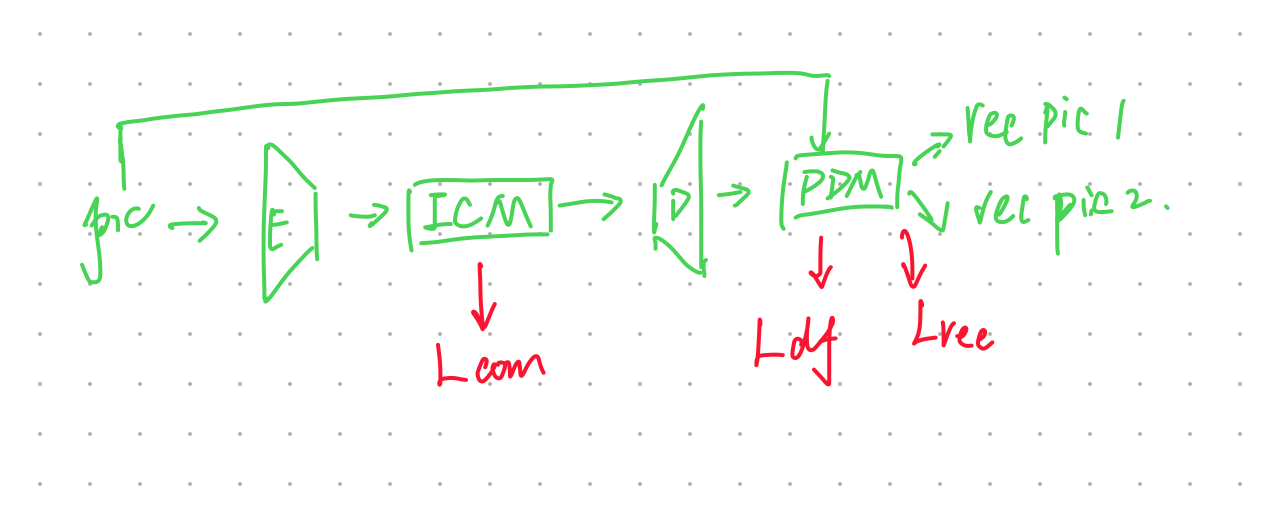 pic
E
ICM
D
PDM
rec pic 1
rec pic 2.
Lcom
Ldf
Lrec